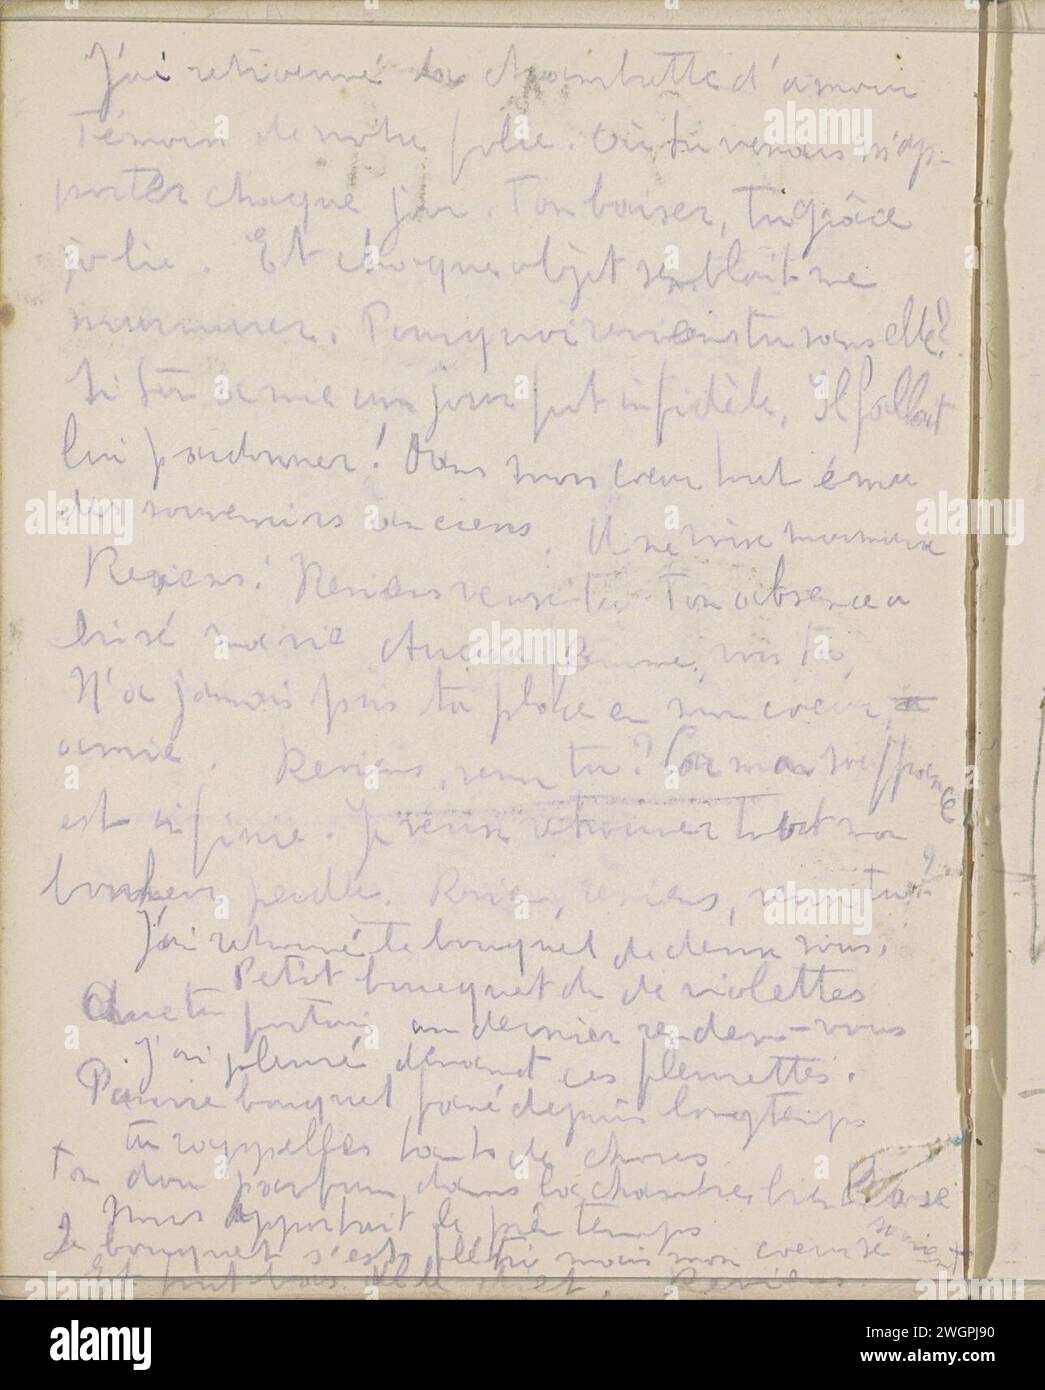 J'ai retrouvé la chambrette d'amour
Témoin de notre folie. Où tu venais m'ap-
porter chaque jour. Ton baiser, ta grâce
jolie. Et chaque objet semblait me
murmurer. Pourquoi reviens tu sans elle?
Si ton amie un jour fut infidèle, Il fallait
lui pardonner! Dans mon coeur tout ému
des souvenirs anciens. Une voix murmure
Reviens! Reviens veux tu Ton absence a
brisé ma vie Aucune femme, vois tu,
N'a jamais pris ta place en mon coeur,
amie. Reviens, veux tu? Car ma souffrance
est infinie. Je veux retrouver tout mon
bonheur perdu. Reviens, reviens, veux tu?
J'ai retrouvé le bouquet de deux sous,
Petit bouquet de de violettes
Que tu portais au dernier rendez-vous
J'ai pleuré devant ces fleurettes.
Pauvre bouquet fané depuis longtemps
tu rappelles tant de choses
Ton doux parfum, dans la chambre bien close
Nous apportait le printemps
Le bouquet s'est flétri mais mon coeur se souvient
Et tout bas elle Reviens
alamy
Image ID: 2WGPJ90
www.alamy.com